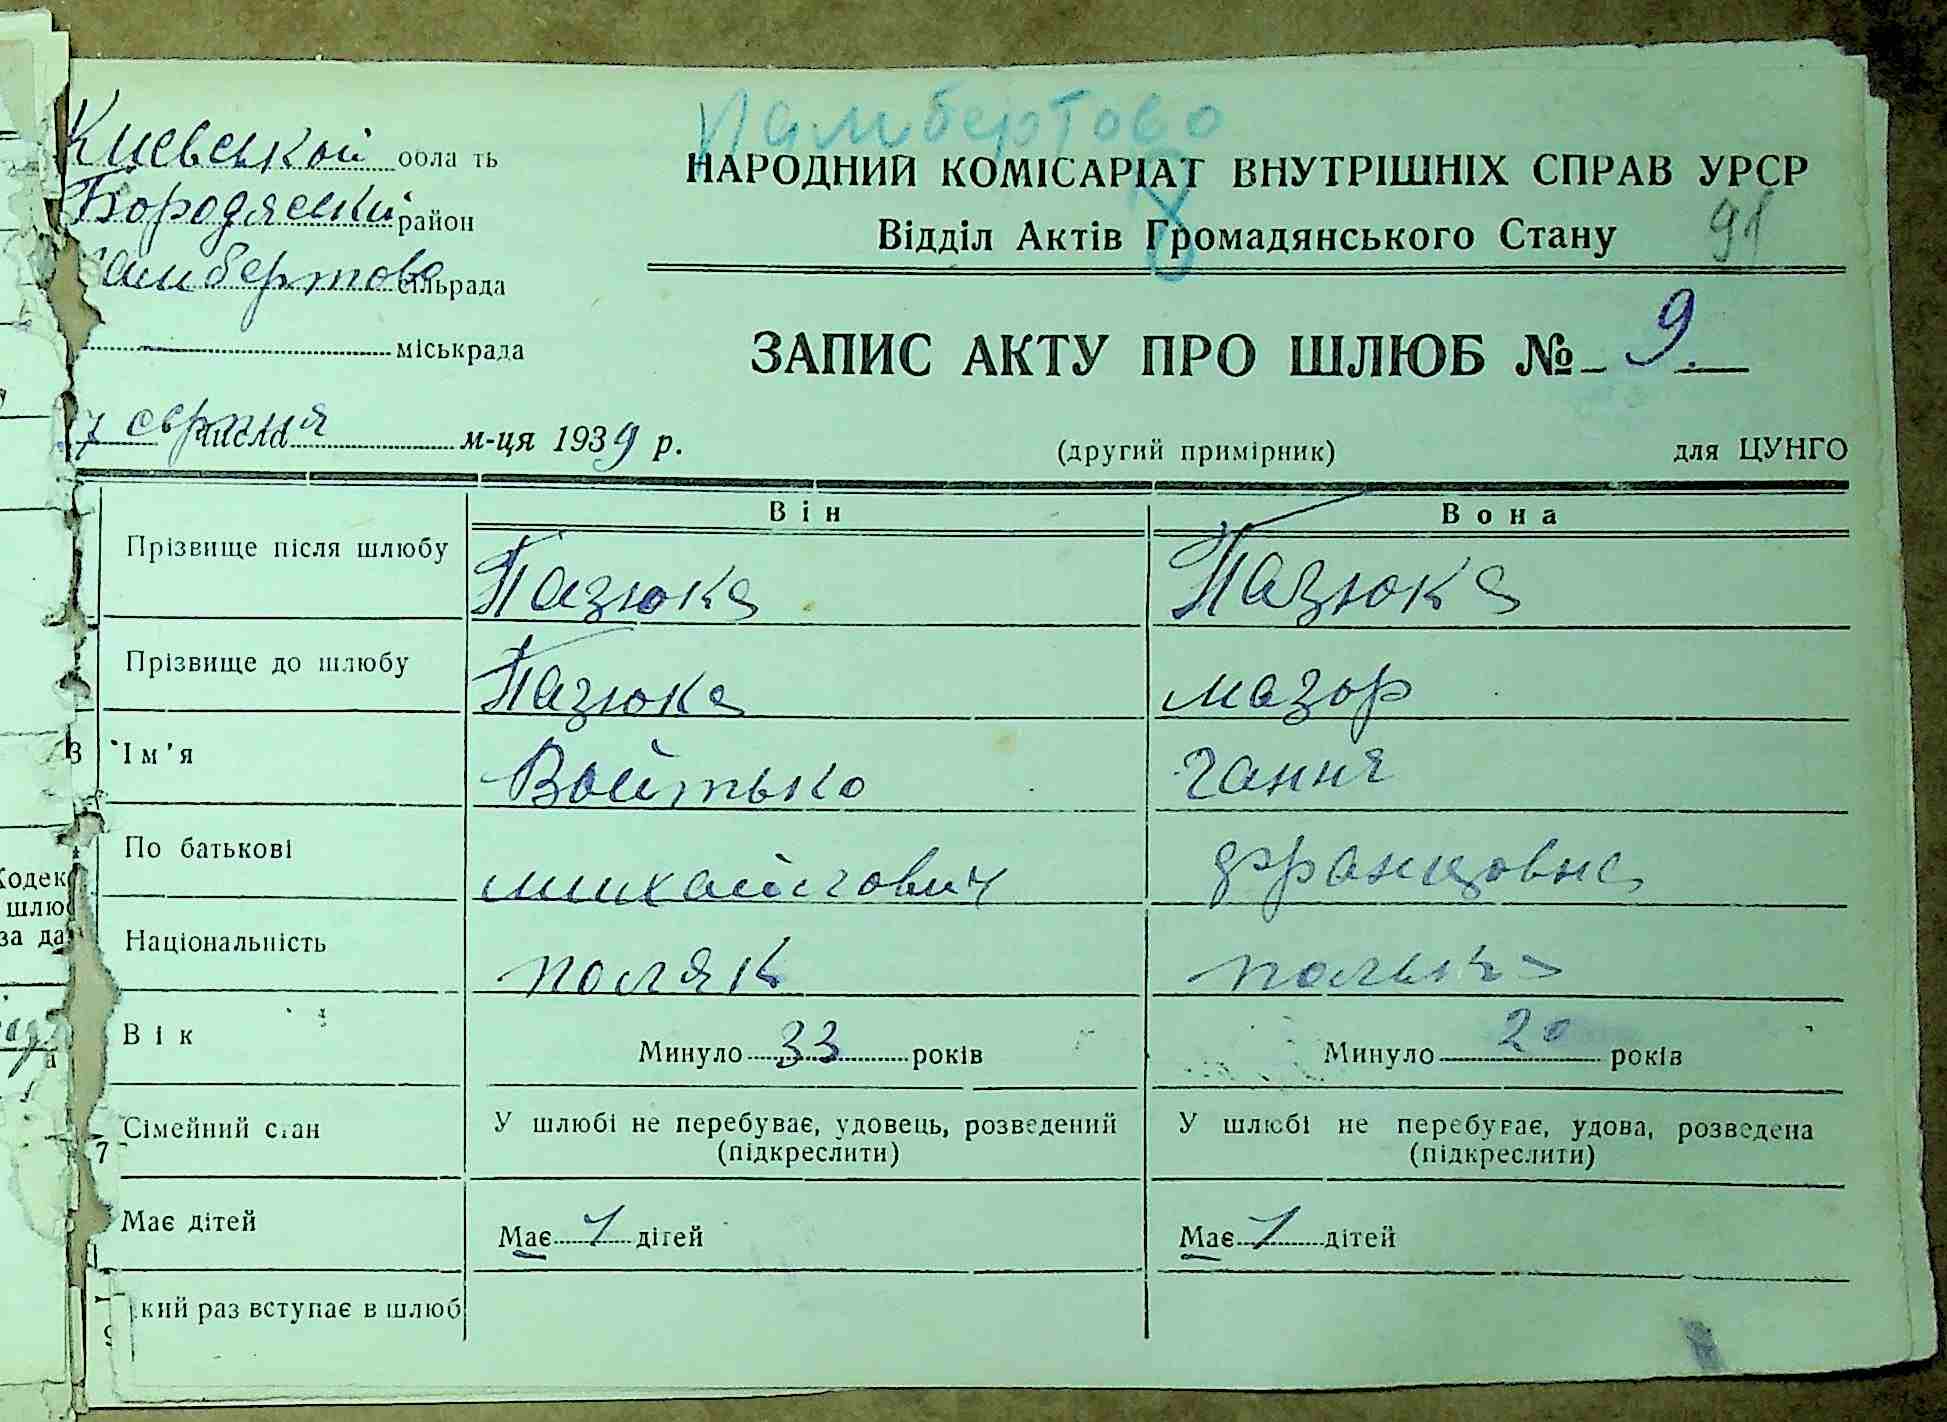 Памбертово
Киевськой область
Бородяський район
Памбертово сільрада
міськрада
НАРОДНИЙ КОМІСАРІАТ ВНУТРІШНІХ СПРАВ УРСР
Відділ Актів Громадянського Стану
91
8
ЗАПИС АКТУ ПРО ШЛЮБ № 9.
7 серпня числа м-ця 1939 р.
(другий примірник)
для ЦУНГО
Він
Вона
Прізвище після шлюбу Пазюка Пазюка
Прізвище до шлюбу Пазюка мазор
3 Ім'я Войтько гання
По батькові михайлович францовна
Національність поляк полька
Вік Минуло 33 років Минуло 20 років
7 Сімейний стан У шлюбі не перебуває, удовець, розведений У шлюбі не перебуває, удова, розведена
(підкреслити) (підкреслити)
Має дітей Має 1 дітей Має 1 дітей
9 кий раз вступає в шлюб
Кодек
шлю
за да